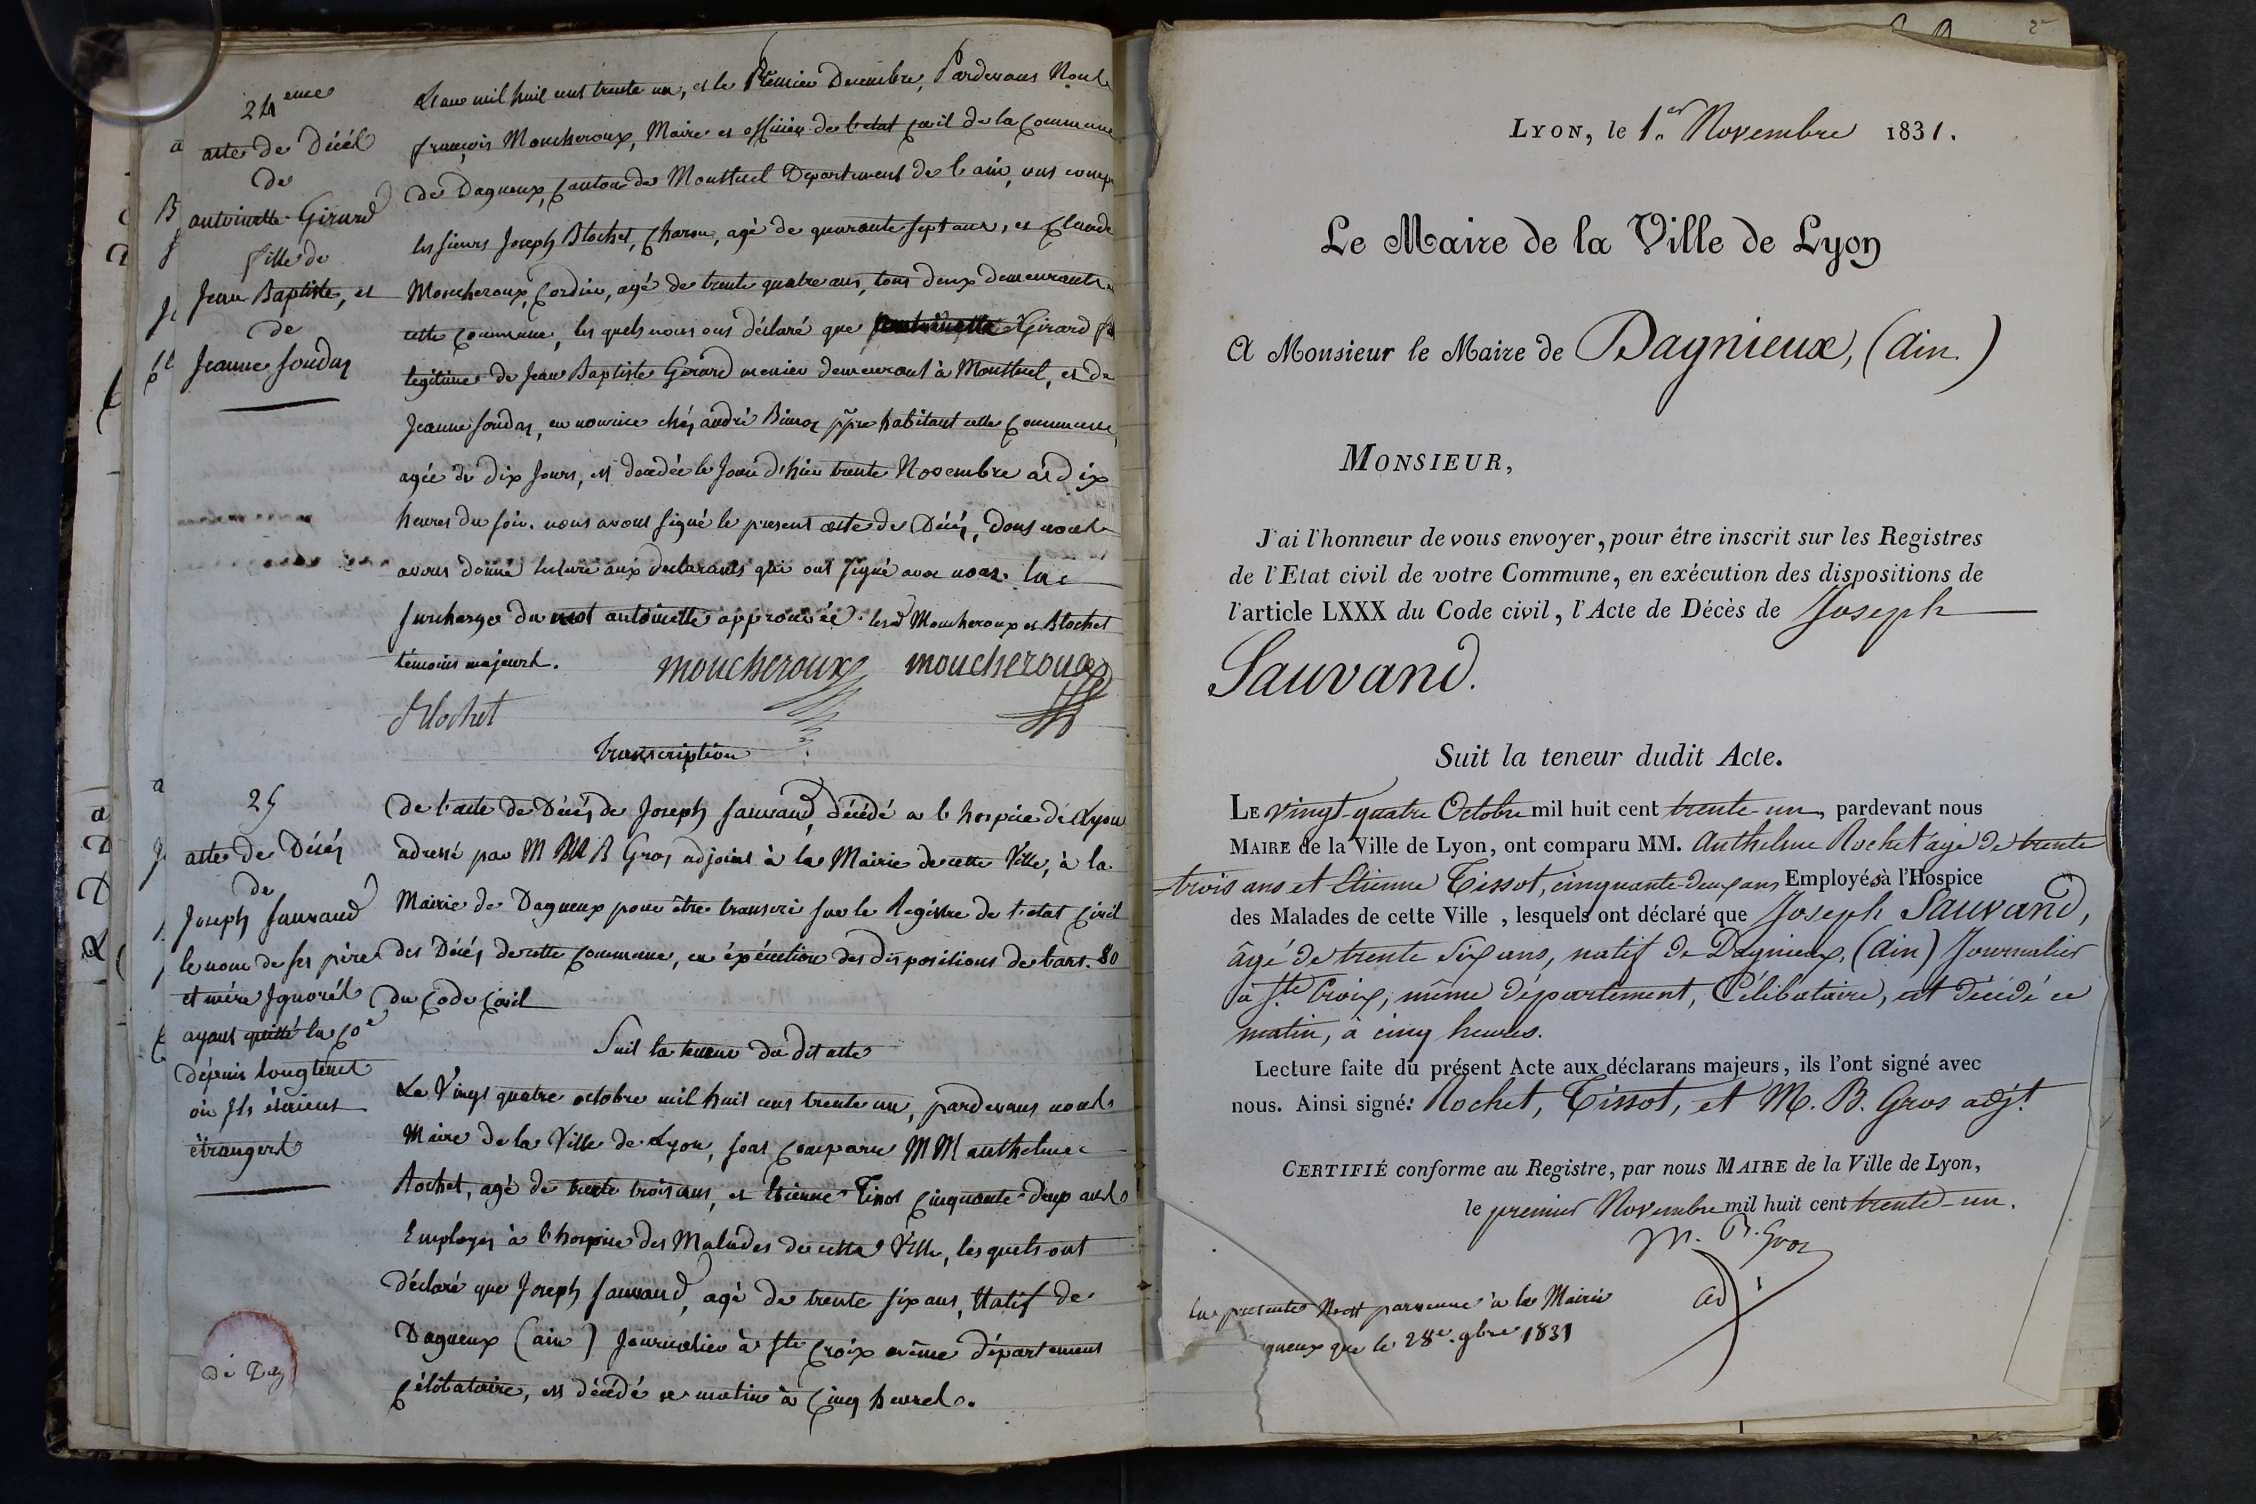 24eme
acte de Décès
de
antoinette Girard
fille de
Jean Baptiste, et
de
Jeanne Soudas
L'an mil huit cent trente un, et le Premier Decembre, Pardevant Nous
françois Moucheroux, Maire et officier de l'etat Civil de la Commune
de Dagneux, Canton de Montluel Departement de l'ain, ont comp
les sieurs Joseph Blochet, Charon, agé de quarante sept ans, et Claude
Moucheroux, Cordier, agé de trente quatre ans, tous deux demeurants
cette commune, les quels nous ont déclaré que antoinette Girard
legitime de Jean Baptiste Gérard menier demeurant à Montluel, et de
Jeanne Soudas, en nourice chéz andré ppre habitant cette Commune,
agée de dix Jours, est decedée le Jour d'hier trente Novembre à dix
heures du soir. nous avons signé le present acte de Décès, Dont nous
avons donné lecture aux declarants qui ont signé avec nous. la
surcharge du mot antoinette approuvée. les Moucheroux et Blochet
témoins majeurs. moucheroux moucheroux
Blochet
Transcription
25
acte de Décés
de
Joseph Sauvand
le nom de ses père
et mère Ignorés
ayant quitté la Ce
depuis longtems
où Ils étaient
étrangers
de l'acte de Décés de Joseph Sauvand, décédé a l'hospice de Lyon
adressé par M M B Gros adjoint à la Mairie de cette Ville, à la
Mairie de Dagneux pour être transcri sur le Registre de l'etat Civil
des Décés de cette Commune, en éxécution des dispositions de l'art. 80
du Code Civil
Suit la teneur du dit acte
Le Vingt quatre octobre mil huit cent trente un, pardevant nous
Maire de la Ville de Lyon, sont Comparu M M anthelme
Rochet, agé de trente trois ans, et Etienne Tissot Cinquante deux ans
Employés à l'hospice des Malades de cette Ville, les quels ont
déclaré que Joseph Sauvand, agé de trente six ans, Natif de
Dagneux (ain) Journalier à Ste Croix même département
Célibataire, est décédé ce matin à Cinq heures.
LYON, le 1.er Novembre 1831.
Le Maire de la Ville de Lyon
A Monsieur le Maire de Dagnieux, (Ain.)
MONSIEUR,
J'ai l'honneur de vous envoyer, pour être inscrit sur les Registres
de l'Etat civil de votre Commune, en exécution des dispositions de
l'article LXXX du Code civil, l'Acte de Décès de Joseph
Sauvand.
Suit la teneur dudit Acte.
LE vingt-quatre Octobre mil huit cent trente-un, pardevant nous
MAIRE de la Ville de Lyon, ont comparu MM. Anthelme Rochet agé de trente
-trois ans et Etienne Tissot, cinquante-deux ans Employés à l'Hospice
des Malades de cette Ville, lesquels ont déclaré que Joseph Sauvand,
âgé de trente six ans, natif de Dagnieux, (Ain) Journalier
à Ste Croix, même département, Célibataire, est décédé ce
matin, à cinq heures.
Lecture faite du présent Acte aux déclarans majeurs, ils l'ont signé avec
nous. Ainsi signé: Rochet, Tissot, et M. B. Gros adjt.
CERTIFIÉ conforme au Registre, par nous MAIRE de la Ville de Lyon,
le premier Novembre mil huit cent trente-un.
M. B. Gros
adj
la presente N'est parvenue à la Mairie
gneux que le 28e. 9bre 1831